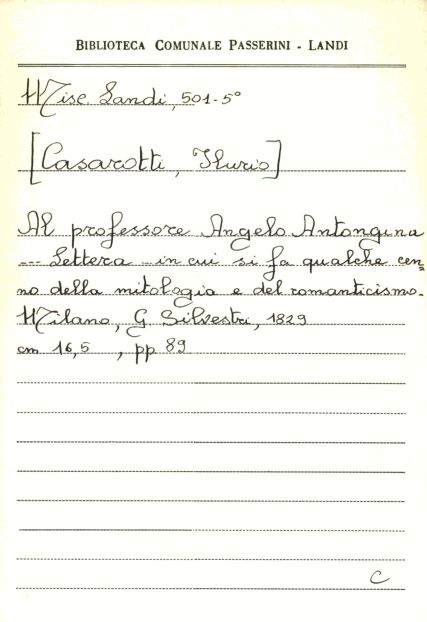 BIBLIOTECA COMUNALE PASSERINI - LANDI
Misc. Landi, 501-5°
[Casarotti, Ilurio]
Al professore Angelo Antongina
--- Lettera - in cui si fa qualche cen=
no della mitologia e del romanticismo.
Milano, G. Silvestri, 1829
cm 16,5 , pp 89
C